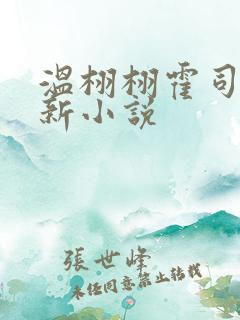 溫栩栩霍司
新小說
張世峰
未经同意禁止转载